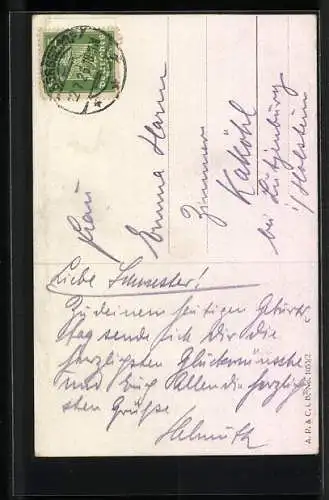 Frau
Emma Hamm
Zimmer
Kaköhl
bei Lütjenburg
i/Holstein
Liebe Schwester!
Zu deinem heutigen Geburts-
tag sende ich Dir die
herzlichsten Glückwünsche
und Euch Allen die herzlich-
sten Grüße
Helmuth